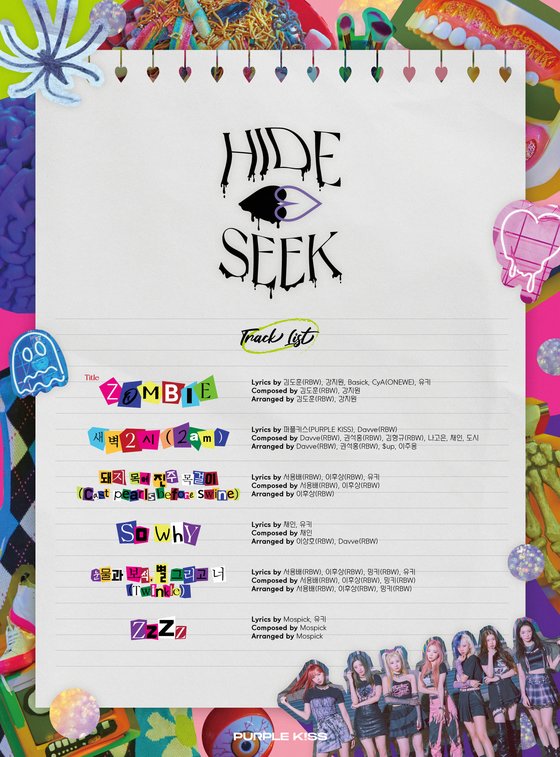 HIDE
SEEK
Track List
Title
ZOMBIE
Lyrics by 김도훈(RBW), 강지원, Basick, CyA(ONEWE), 유키
Composed by 김도훈(RBW), 강지원
Arranged by 김도훈(RBW), 강지원
새벽2시 (2am)
Lyrics by 퍼플키스(PURPLE KISS), Davve(RBW)
Composed by Davve(RBW), 권석홍(RBW), 김형규(RBW), 나고은, 채인, 도시
Arranged by Davve(RBW), 권석홍(RBW), $up, 이주용
돼지 목에 진주 목걸이
(Cast pearls before swine)
Lyrics by 서용배(RBW), 이후상(RBW), 유키
Composed by 서용배(RBW), 이후상(RBW)
Arranged by 이후상(RBW)
So whY
Lyrics by 채인, 유키
Composed by 채인
Arranged by 이상호(RBW), Davve(RBW)
눈물과 보석, 별 그리고 너
(Twinkle)
Lyrics by 서용배(RBW), 이후상(RBW), 밍키(RBW), 유키
Composed by 서용배(RBW), 이후상(RBW), 밍키(RBW)
Arranged by 서용배(RBW), 이후상(RBW), 밍키(RBW)
ZzZz
Lyrics by Mospick, 유키
Composed by Mospick
Arranged by Mospick
PURPLE KISS